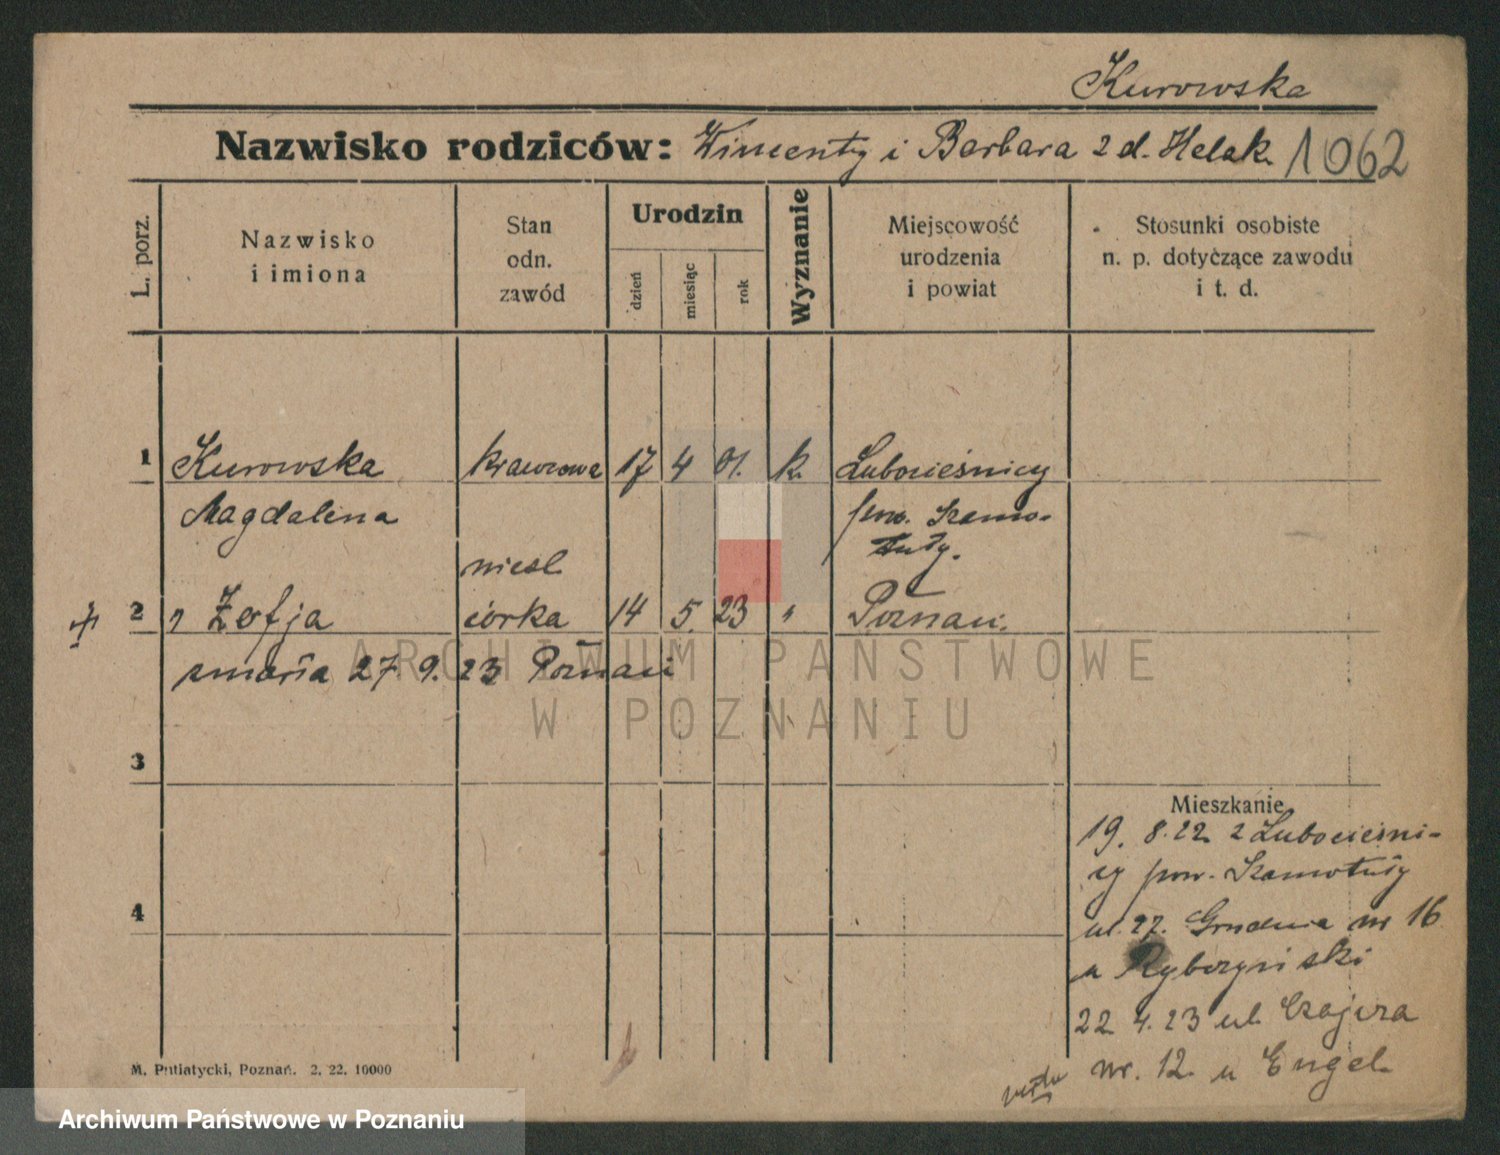 Kurowska
Nazwisko rodziców: Wincenty i Barbara z d. Helak. 1062
L. porz.
Nazwisko
i imiona
Stan
odn.
zawód
Urodzin
dzień
miesiąc
rok
Wyznanie
Miejscowość
urodzenia
i powiat
Stosunki osobiste
n. p. dotyczące zawodu
i t. d.
1 Kurowska krawcowa 17 4 01. k. Lubocieśnicy
Magdalena pow. Szamo-
tuły.
nieśl
2 " Zofja córka 14 5. 23 " Poznań.
zmarła 27 9. 23 Poznań
ARCHIWUM PAŃSTWOWE
W POZNANIU
3
4
Mieszkanie
19. 8. 22 z Lubocieśni-
cy pow. Szamotuły
ul. 27. Grudnia nr 16
u
22 4. 23 ul. Czajcza
nr. 12 u Engel.
M. Putiatycki, Poznań. 2. 22. 10000
Archiwum Państwowe w Poznaniu